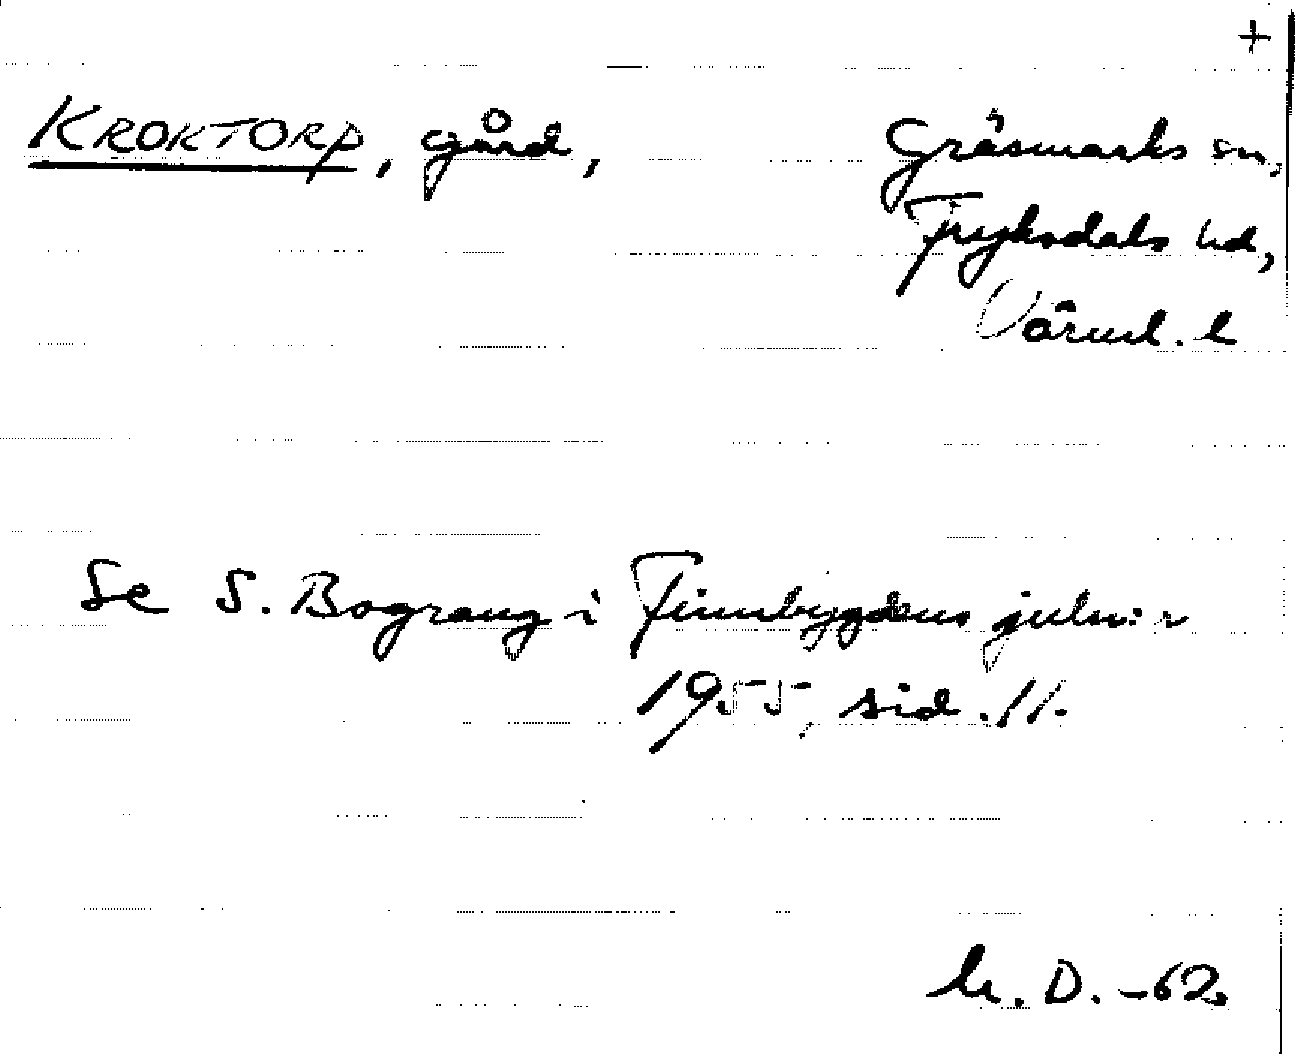 +
KROKTORP, gård, Gräsmarks sn,
Fryksdals hd,
Värml. l
Se S. Bograng i Finnbygdens juln:r
1955, sid. 11.
D. -62